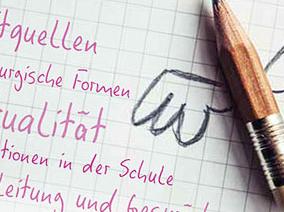 tquellen
urgische Formen
ualität
tionen in der Schule
Leitung und